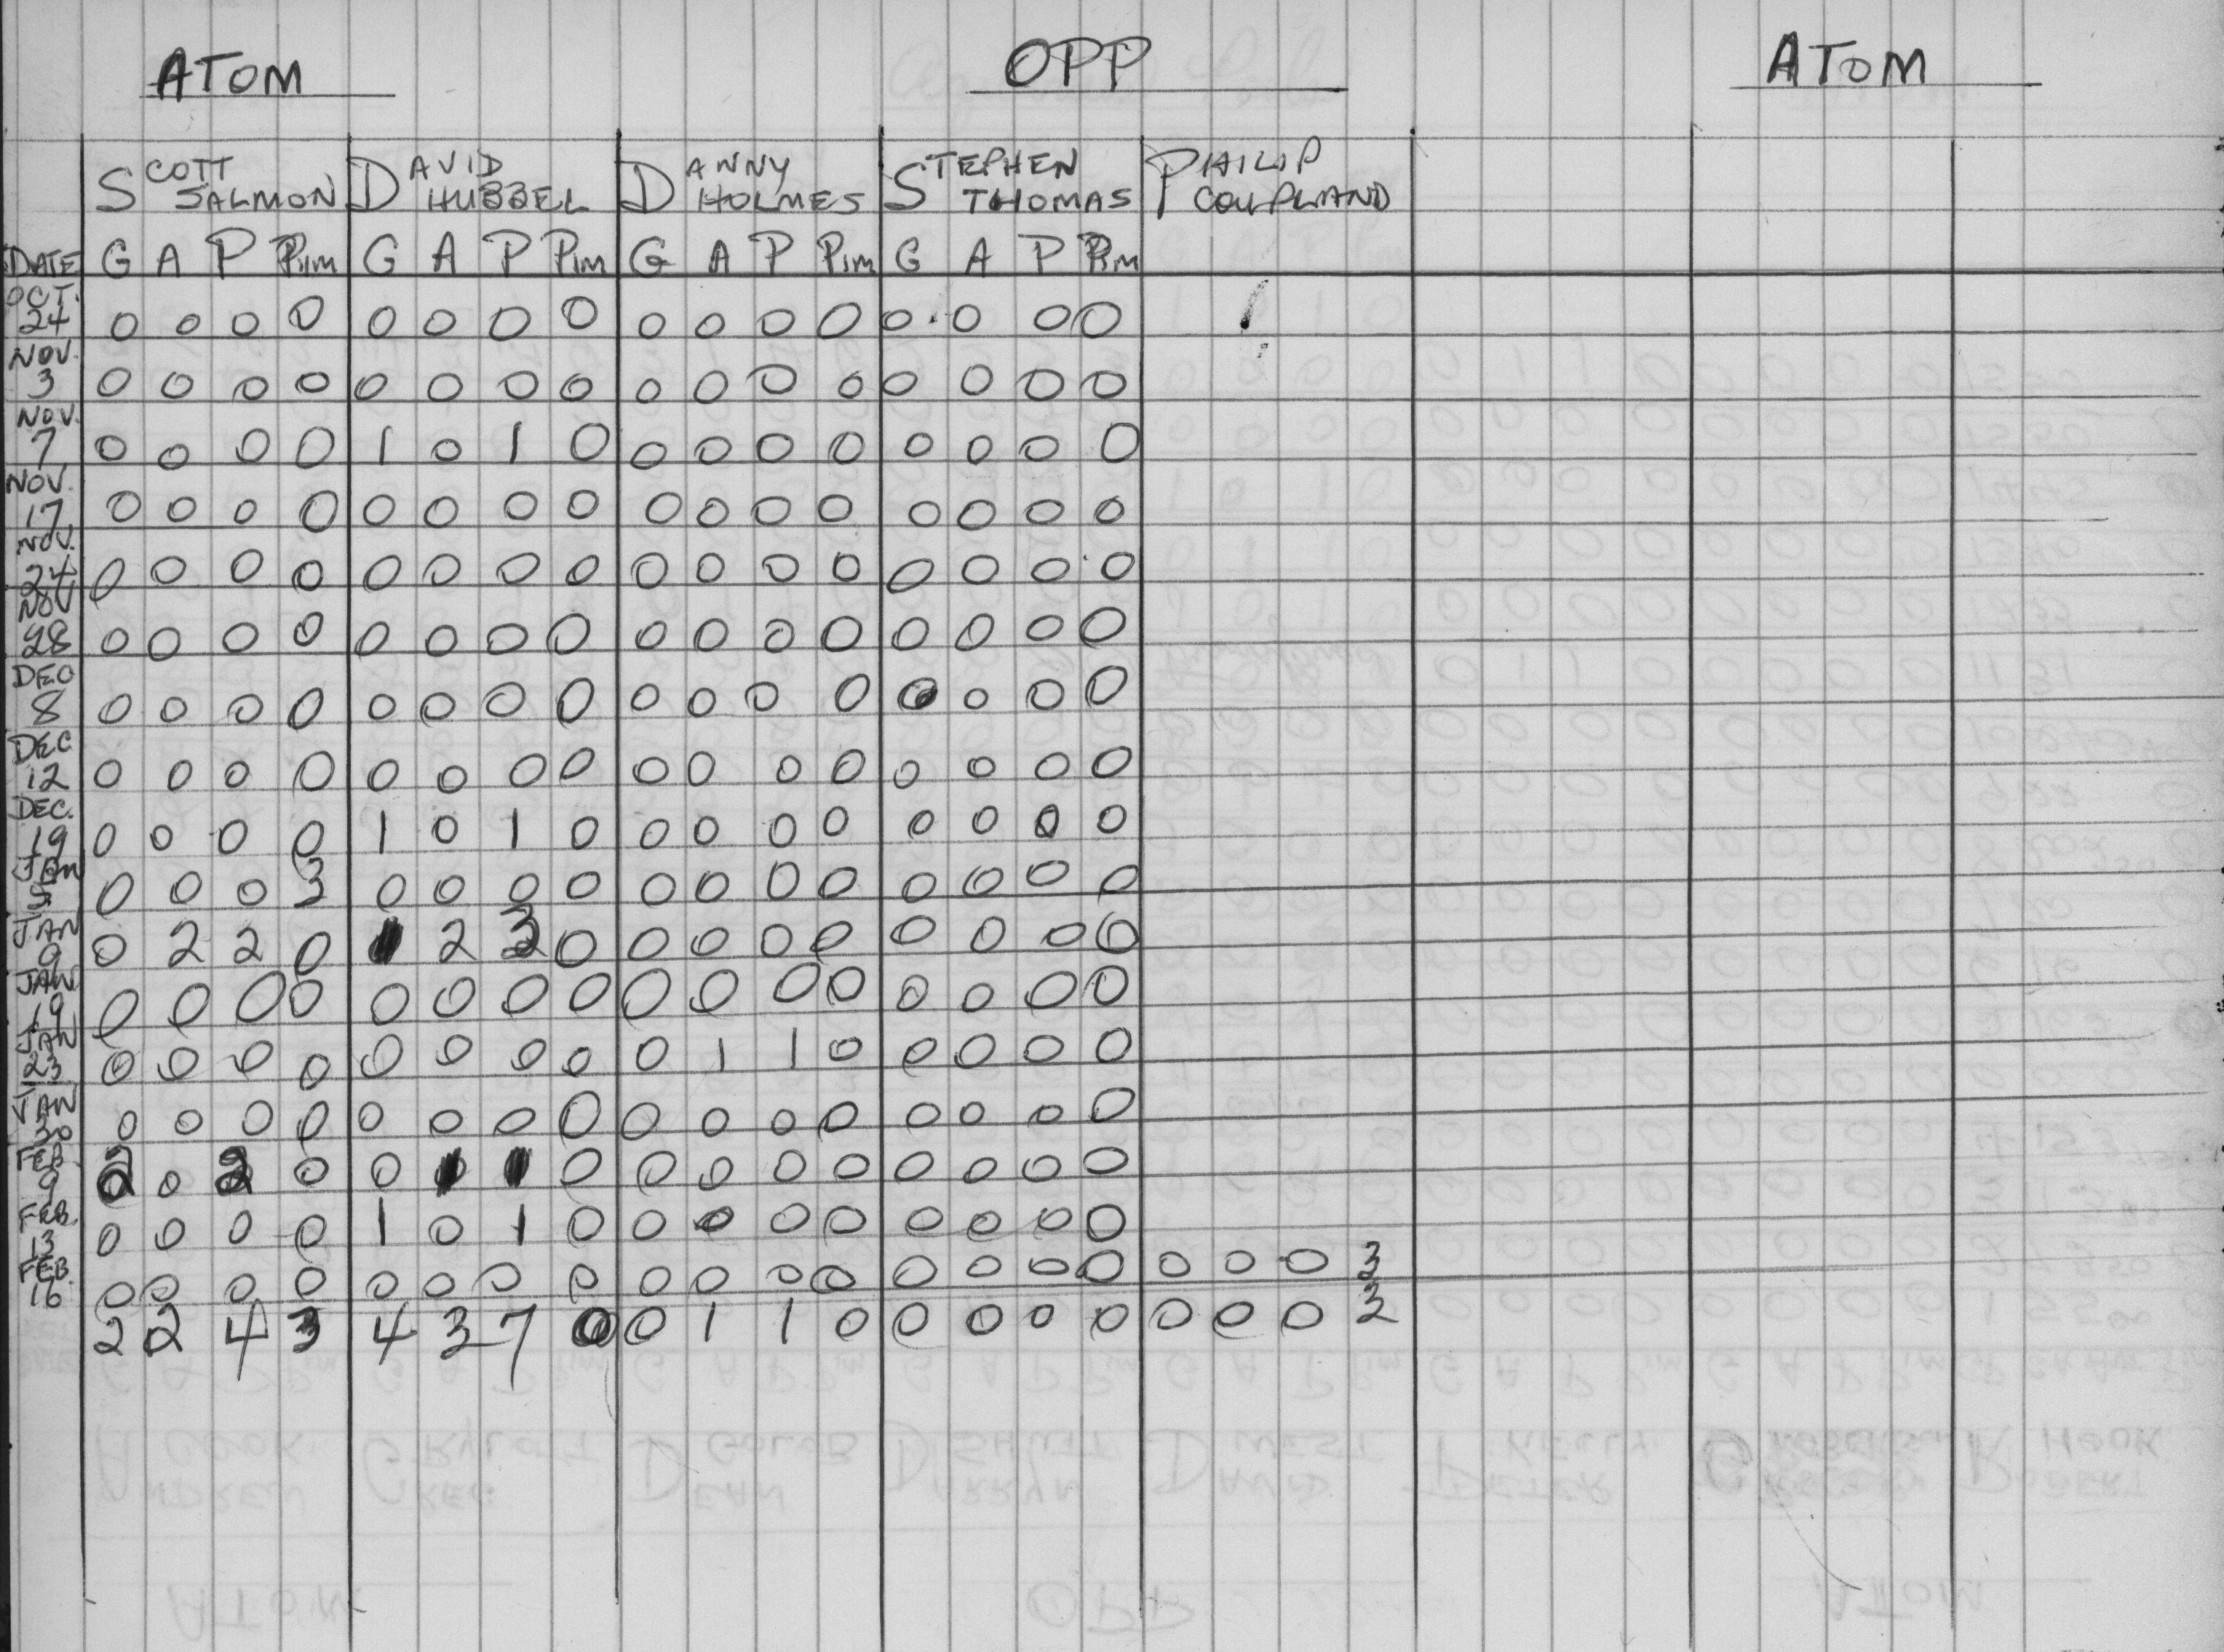 ATOM OPP ATOM
SCOTT SALMON DAVID HUBBEL DANNY HOLMES STEPHEN THOMAS PHILIP COUPLAND
DATE G A P Pim G A P Pim G A P Pim G A P Pim
OCT. 24 0 0 0 0 0 0 0 0 0 0 0 0 0 0 0 0
NOV. 3 0 0 0 0 0 0 0 0 0 0 0 0 0 0 0 0
NOV. 7 0 0 0 0 1 0 1 0 0 0 0 0 0 0 0 0
NOV. 17 0 0 0 0 0 0 0 0 0 0 0 0 0 0 0 0
NOV. 24 0 0 0 0 0 0 0 0 0 0 0 0 0 0 0 0
NOV 28 0 0 0 0 0 0 0 0 0 0 0 0 0 0 0 0
DEC 8 0 0 0 0 0 0 0 0 0 0 0 0 0 0 0 0
DEC 12 0 0 0 0 0 0 0 0 0 0 0 0 0 0 0 0
DEC. 19 0 0 0 0 1 0 1 0 0 0 0 0 0 0 0 0
JAN 0 0 0 3 0 0 0 0 0 0 0 0 0 0 0 0
JAN 9 0 2 2 0 1 2 3 0 0 0 0 0 0 0 0 0
JAN 19 0 0 0 0 0 0 0 0 0 0 0 0 0 0 0 0
JAN 23 0 0 0 0 0 0 0 0 0 1 1 0 0 0 0 0
JAN 30 0 0 0 0 0 0 0 0 0 0 0 0 0 0 0 0
FEB 9 2 0 2 0 0 1 1 0 0 0 0 0 0 0 0 0
FEB. 13 0 0 0 0 1 0 1 0 0 0 0 0 0 0 0 0
FEB. 16 0 0 0 0 0 0 0 0 0 0 0 0 0 0 0 0 0 0 0 3
2 2 4 3 4 3 7 0 0 1 1 0 0 0 0 0 0 0 0 3